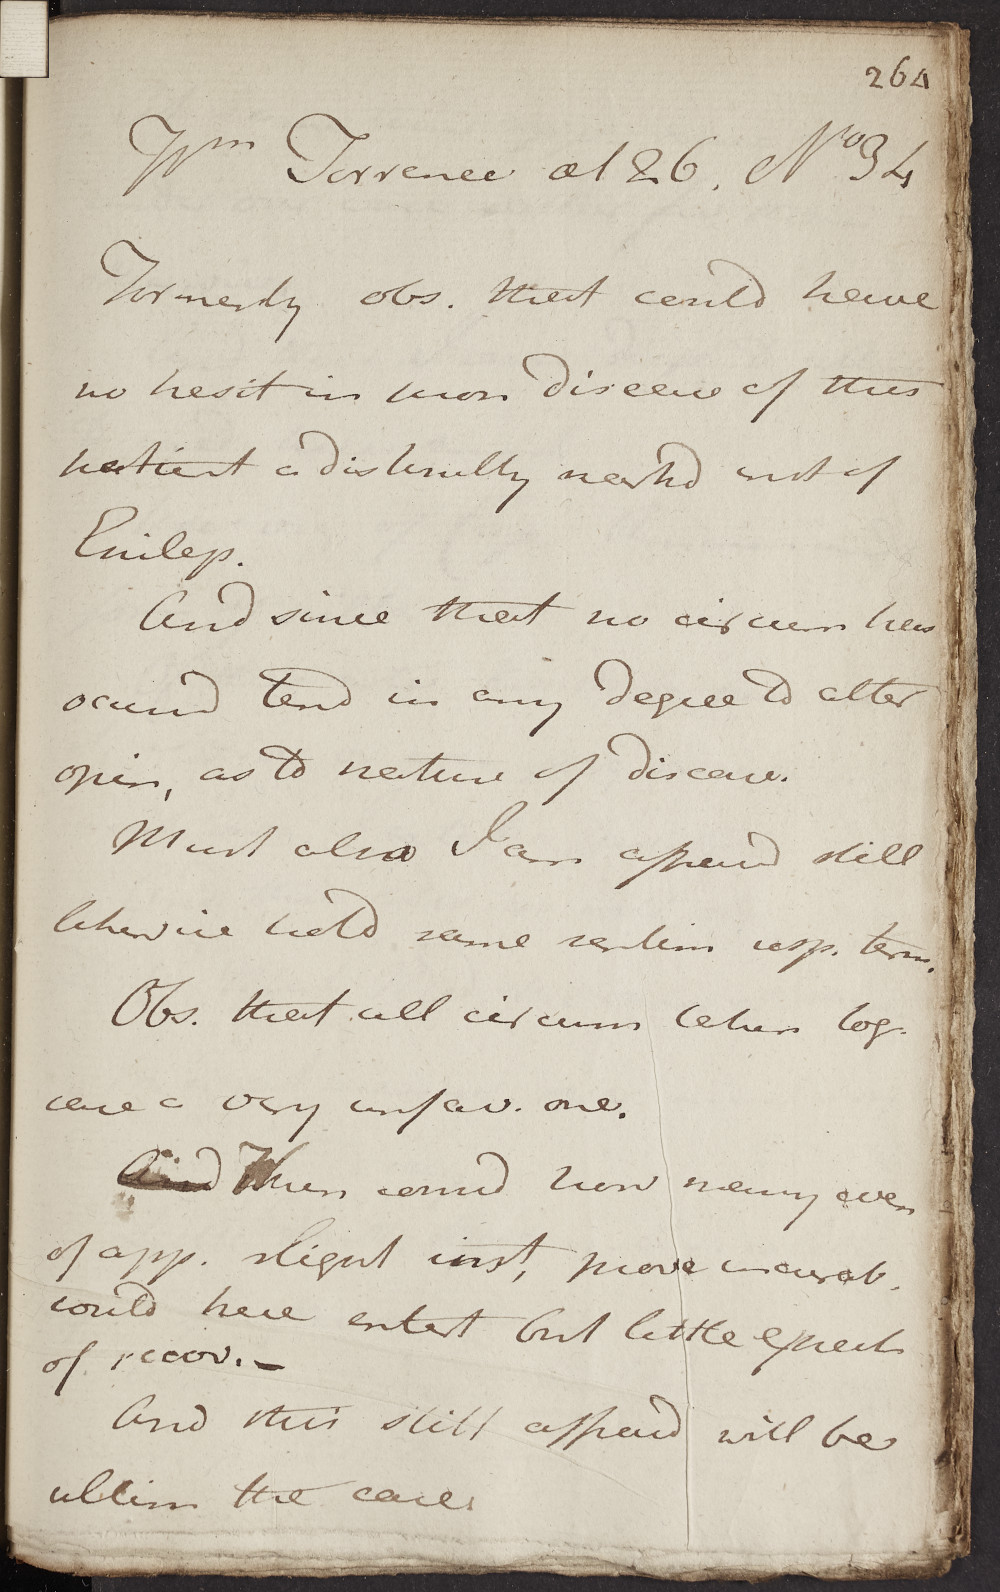 264
Wm Torrence æt 26. No 34
Formerly obs. that could have
no hesit in pron disease of this
patient a distinctly markd inst of
Epilep.
And since that no circum has
occurd tend in any degree to alter
opin, as to nature of disease.
Must also I am afraid still
likewise hold same sentim resp. term.
Obs. that all circum taken tog.
case a very unfav. one.
And When consid how many even
of app. slight inst, prove incurab.
could have entert but little expect
of recov. -
And this still affraid will be
ultim the case